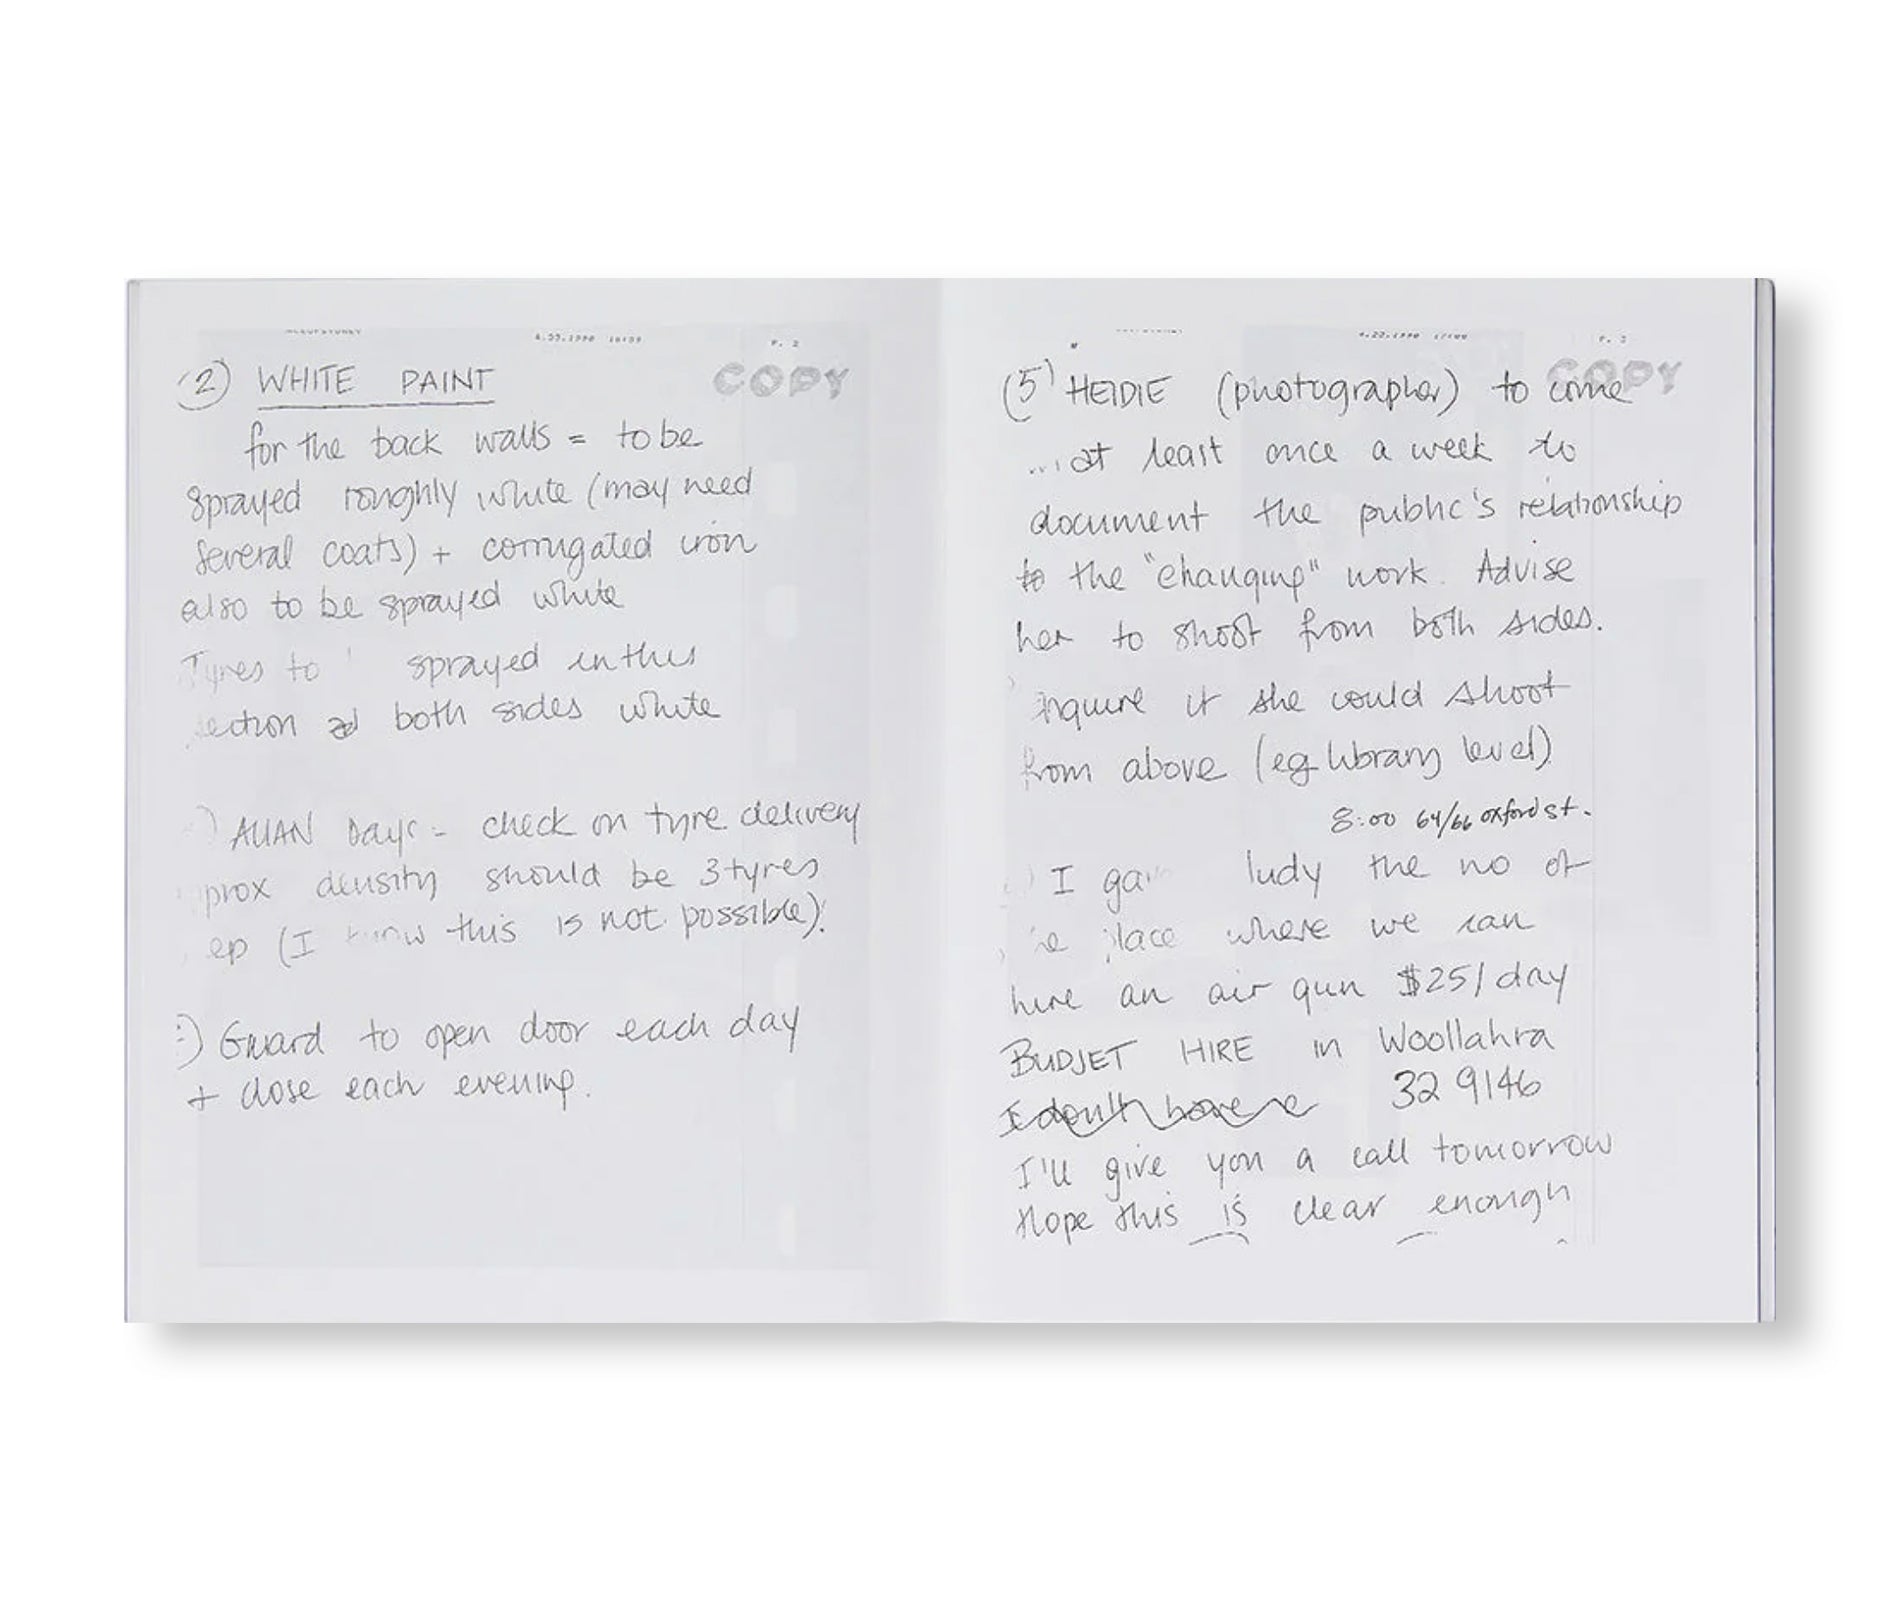 P. 2
COPY
(2) WHITE PAINT
for the back walls = to be
sprayed roughly white (may need
several coats) + corrugated iron
also to be sprayed white
Tyres to sprayed in this
ection both sides white
) ALLAN Days = check on tyre delivery
prox density should be 3 tyres
ep (I know this is not possible)!
) Guard to open door each day
+ close each evening.
COPY
(5) HEIDIE (photographer) to come
... at least once a week to
document the public's relationship
to the "changing" work. Advise
her to shoot from both sides.
inquire if she could shoot
from above (eg library level)
8:00 64/66 oxford st.
I ga ludy the no of
e place where we can
hire an air gun $25/day
BUDJET HIRE in Woollahra
I don't have 32 9146
I'll give you a call tomorrow
Hope this is clear enough